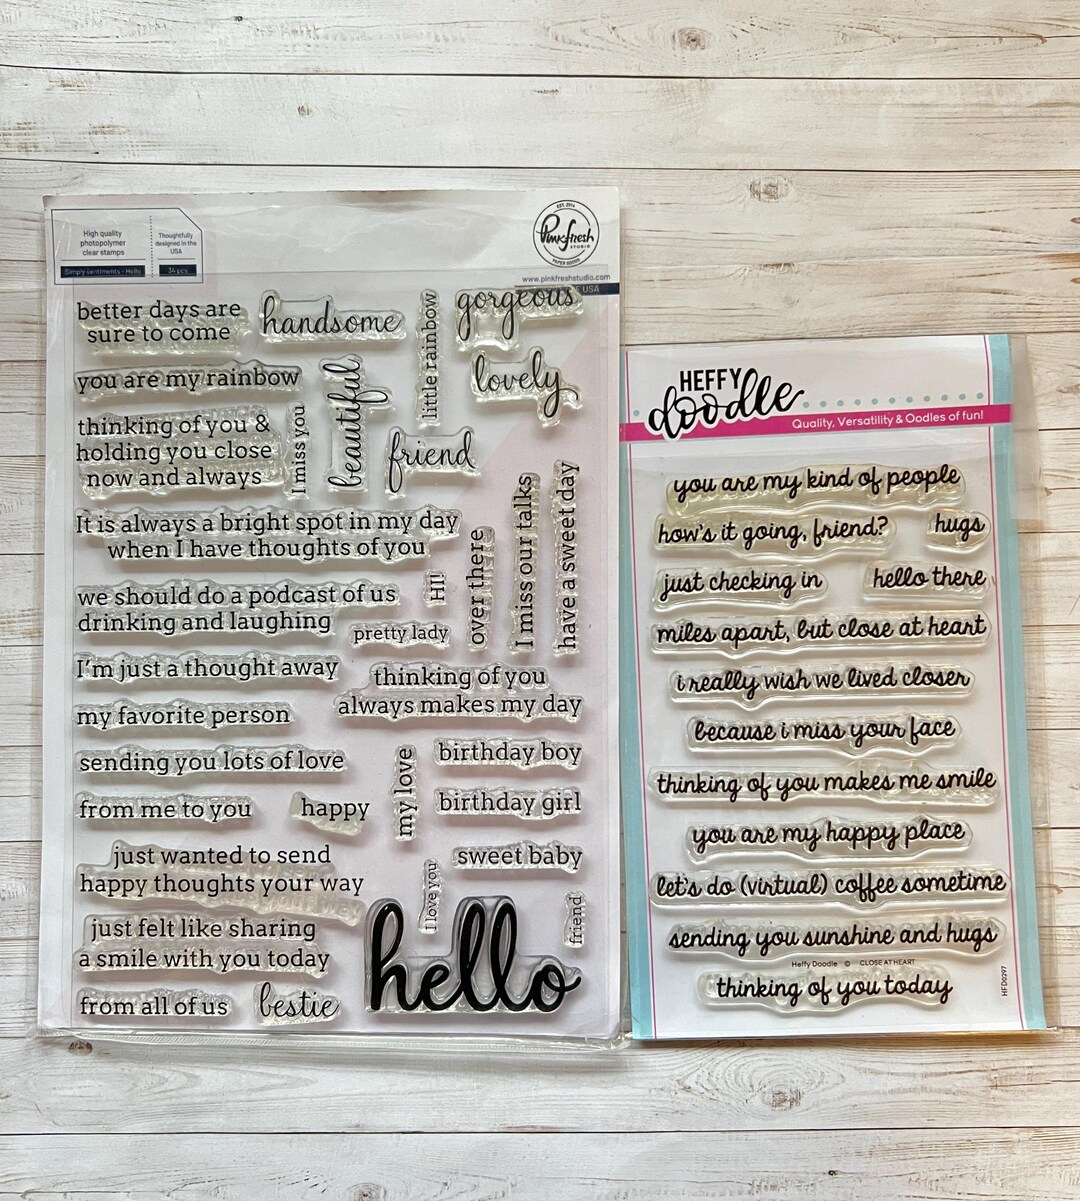 High quality
photopolymer
clear stamps
Simply sentiments - Hello
Thoughtfully
designed in the
USA
34 pcs
EST. 2014
Pinkfresh
STUDIO
PAPER GOODS
www.pinkfreshstudio.com
USA
better days are
sure to come
handsome
little rainbow
gorgeous
you are my rainbow
beautiful
lovely
thinking of you &
holding you close
now and always
I miss you
friend
It is always a bright spot in my day
when I have thoughts of you
we should do a podcast of us
drinking and laughing
HI!
over there
I miss our talks
have a sweet day
pretty lady
I'm just a thought away
thinking of you
always makes my day
my favorite person
sending you lots of love
my love
birthday boy
from me to you
happy
birthday girl
just wanted to send
happy thoughts your way
I love you
sweet baby
just felt like sharing
a smile with you today
hello
friend
from all of us
bestie
HEFFY
doodle
Quality, Versatility & Oodles of fun!
you are my kind of people
how's it going, friend?
hugs
just checking in
hello there
miles apart, but close at heart
i really wish we lived closer
because i miss your face
thinking of you makes me smile
you are my happy place
let's do (virtual) coffee sometime
sending you sunshine and hugs
Heffy Doodle © CLOSE AT HEART
thinking of you today
HFD0297